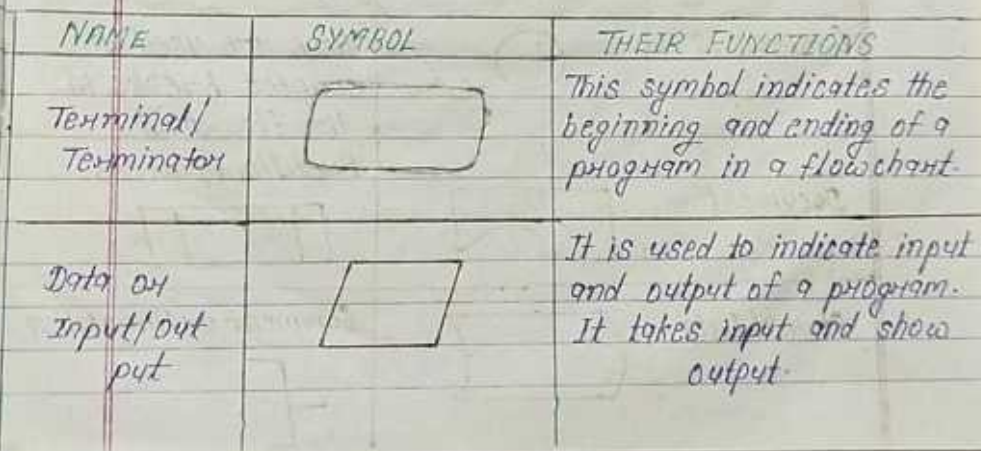 NAME SYMBOL THEIR FUNCTIONS
Terminal/
Terminator
This symbol indicates the
beginning and ending of a
program in a flowchart.
Data or
Input/out
put
It is used to indicate input
and output of a program.
It takes input and show
output.